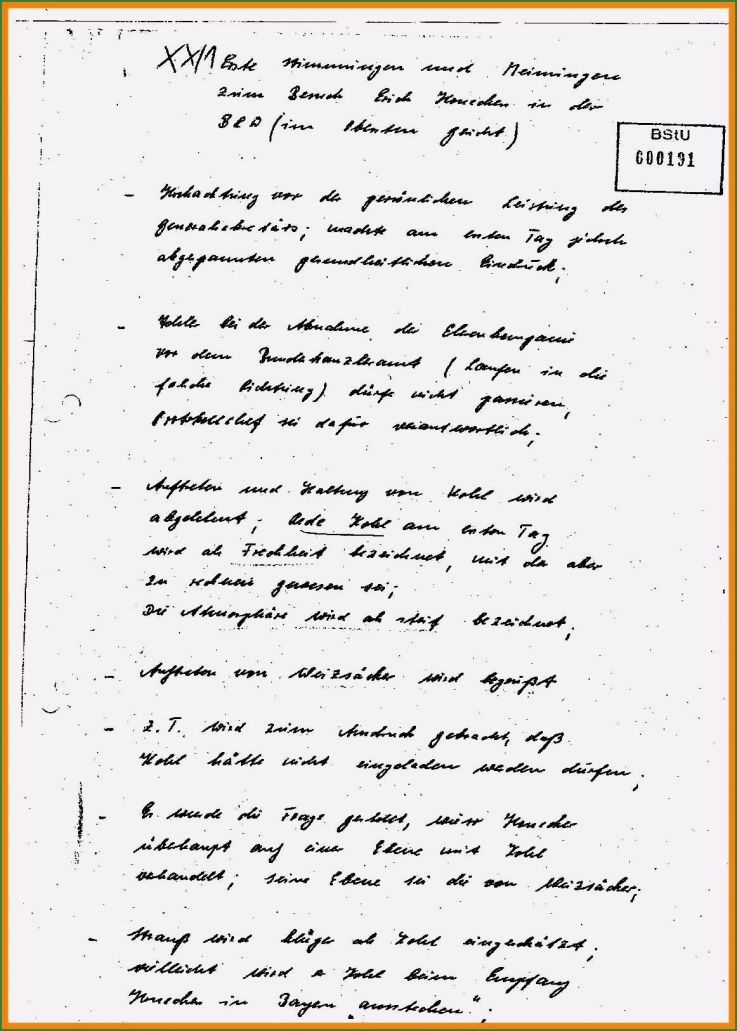 XX/1 Erste Stimmungen und Meinungen
zum Besuch Erich Honeckers in der
BRD (im Obersten Gericht)
BStU
000191
- Hochachtung vor der persönlichen Leistung des
Generalsekretärs; machte am ersten Tag jedoch
abgespannten gesundheitlichen Eindruck;
- Fehler bei der Abnahme der Ehrenkompanie
vor dem Bundeskanzleramt (Laufen in die
falsche Richtung) dürfe nicht passieren,
Protokollchef sei dafür verantwortlich;
- Auftreten und Haltung von Kohl wird
abgelehnt; Rede Kohl am ersten Tag
wird als Frechheit bezeichnet, mit der aber
zu rechnen gewesen sei;
Die Atmosphäre wird als steif bezeichnet;
- Auftreten von Weizsäcker wird begrüßt
- Z. T. wird zum Ausdruck gebracht, daß
Kohl hätte nicht eingeladen werden dürfen;
- Es wurde die Frage gestellt, wieso Honecker
überhaupt auf einer Ebene mit Kohl
verhandelt; seine Ebene sei die von Weizsäcker;
- Strauß wird klüger als Kohl eingeschätzt;
vielleicht wird er Kohl beim Empfang
Honecker in Bayern "ausstechen";